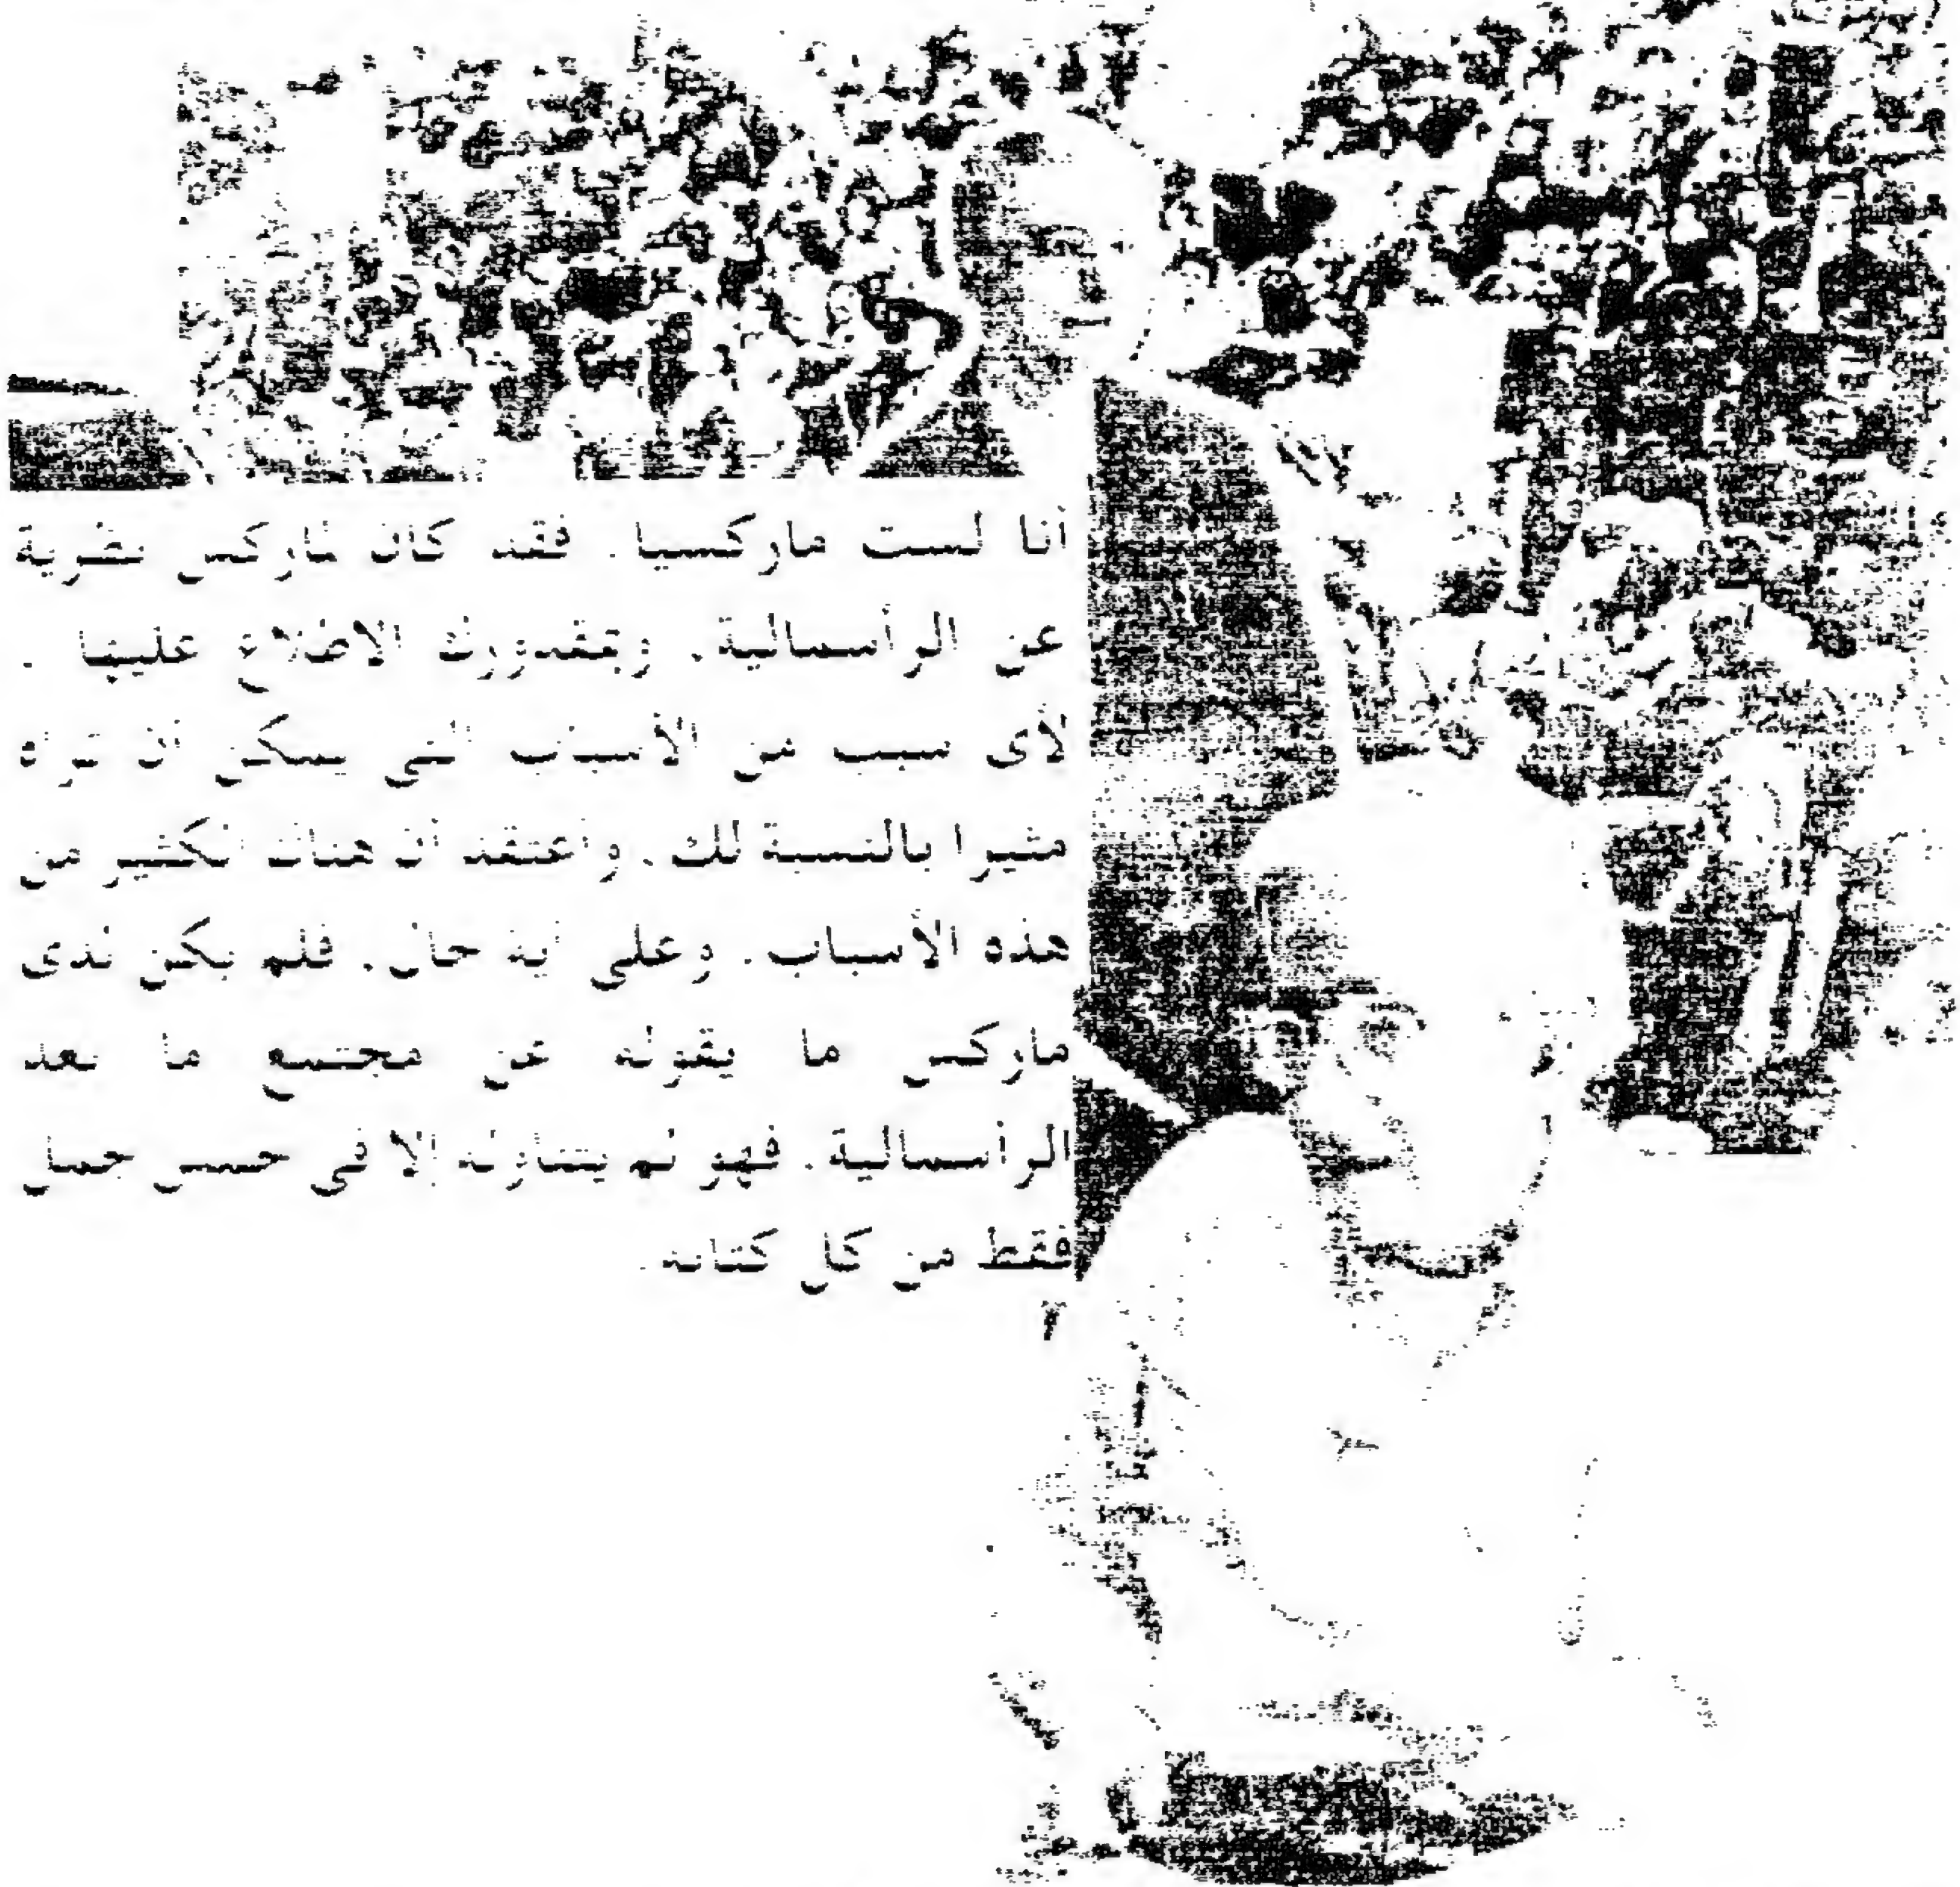 أنا لست ماركسيا. فقد كان لماركس نظرية
عن الرأسمالية. وبمقدورك الاطلاع عليها.
لأى سبب من الأسباب التى يمكن أن تراه
مثيرا بالنسبة لك. وأعتقد أن هناك الكثير من
هذه الأسباب. وعلى أية حال. فلم يكن لدى
ماركس ما يقوله عن مجتمع ما بعد
الرأسمالية. فهو لم يتناوله إلا فى خمس جمل
فقط من كل كتابه.